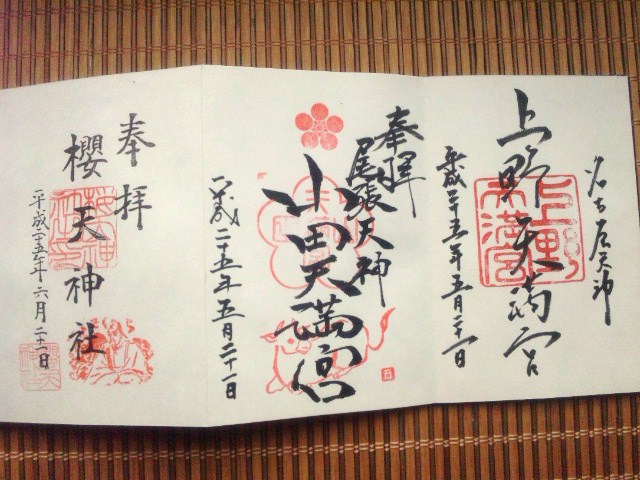 名古屋天神
上野天満宮
上野
天満宮
平成二十五年五月二十一日
奉拝
尾張天神
山田天満宮
平成二十五年五月二十一日
奉拝
櫻天神社
平成二十五年六月二十一日